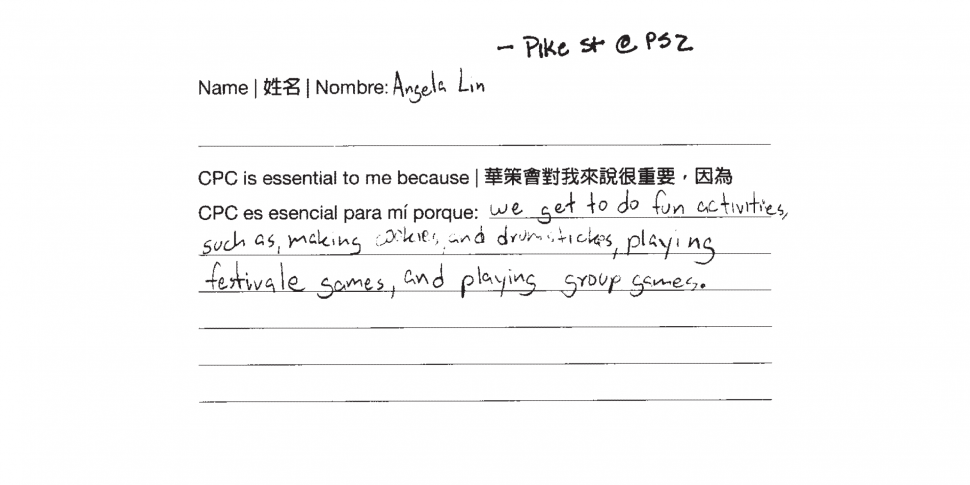 - Pike St @ PS2
Name | 姓名 | Nombre: Angela Lin
CPC is essential to me because | 華策會對我來說很重要，因為
CPC es esencial para mí porque: we get to do fun activities,
such as, making cookies, and drumstickes, playing
festivale games, and playing group games.